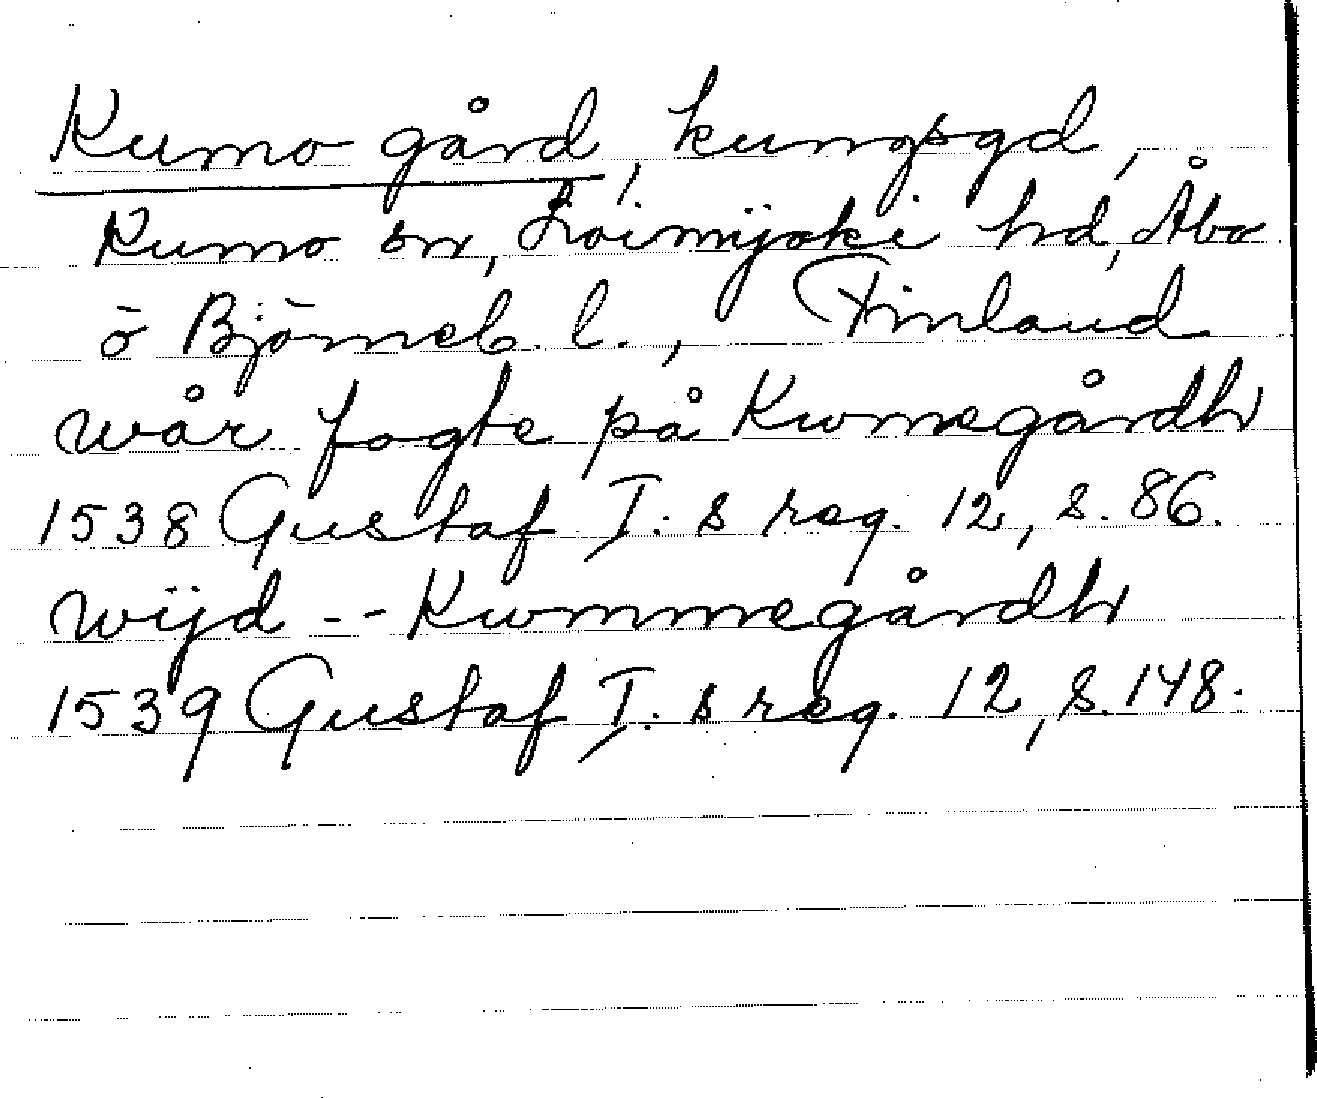 Kumo gård, kungsgd,
Kumo sn, Loimijoki hd, Åbo
o Björneb. l., Finland
wår fogte på Kwmegårdh
1538 Gustaf I:s reg. 12, s. 86.
wijd -- Kwmmegårdh
1539 Gustaf I:s reg. 12, s. 148.